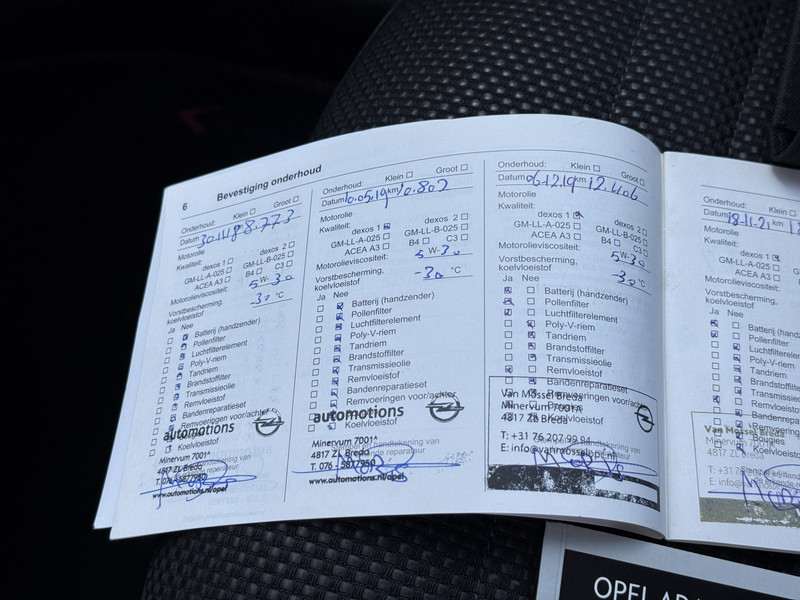 6
Bevestiging onderhoud
Onderhoud: Klein ☐ Groot ☐
Datum 30.11.18 8.773
Motorolie
Kwaliteit: dexos 1 ☐ dexos 2 ☐
GM-LL-A-025 ☐ GM-LL-B-025 ☐
ACEA A3 ☐ B4 ☐ C3 ☐
Motorolieviscositeit: 5 W-30
Vorstbescherming,
koelvloeistof -30 °C
Ja Nee
Batterij (handzender)
Pollenfilter
Luchtfilterelement
Poly-V-riem
Tandriem
Brandstoffilter
Transmissieolie
Remvloeistof
Bandenreparatieset
Remvoeringen voor/achter
Koelvloeistof
automotions
Minervum 7001A
4817 ZL Breda
T. 076 - 5877950
www.automotions.nl/opel
Onderhoud: Klein ☐ Groot ☐
Datum 10.05.19 km 10.802
Motorolie
Kwaliteit: dexos 1 ☒ dexos 2 ☐
GM-LL-A-025 ☐ GM-LL-B-025 ☐
ACEA A3 ☐ B4 ☐ C3 ☐
Motorolieviscositeit: 5 W-30
Vorstbescherming,
koelvloeistof -30 °C
Ja Nee
Batterij (handzender)
Pollenfilter
Luchtfilterelement
Poly-V-riem
Tandriem
Brandstoffilter
Transmissieolie
Remvloeistof
Bandenreparatieset
Remvoeringen voor/achter
automotions
Minervum 7001A
4817 ZL Breda
T. 076 - 5877950
www.automotions.nl/opel
Onderhoud: Klein ☐ Groot ☐
Datum 06.12.19 km 12.406
Motorolie
Kwaliteit: dexos 1 ☒ dexos 2 ☐
GM-LL-A-025 ☐ GM-LL-B-025 ☐
ACEA A3 ☐ B4 ☐ C3 ☐
Motorolieviscositeit: 5 W-30
Vorstbescherming,
koelvloeistof -30 °C
Ja Nee
Batterij (handzender)
Pollenfilter
Luchtfilterelement
Poly-V-riem
Tandriem
Brandstoffilter
Transmissieolie
Remvloeistof
Bandenreparatieset
Koelvloeistof
Van Mossel Breda
Minervum 7001A
4817 ZL Breda
T: +31 76 207 99 94
E: info@vanmosselopel.nl
Onderhoud:
Datum 18-11-21 km
Motorolie
Kwaliteit:
dexos 1 ☒
GM-LL-A-025 ☐
ACEA A3 ☐
Motorolieviscositeit:
Vorstbescherming,
koelvloeistof
Ja Nee
Pollenfilter
Tandriem
Remvloeistof
Bougies
Koelvloeistof
Van Mossel Breda
Minervum 7001A
4817 ZL Breda